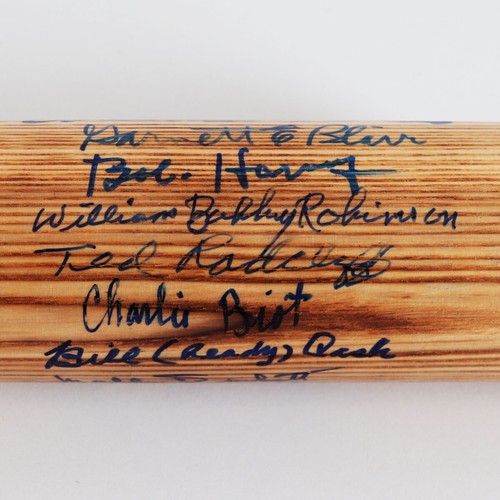 Garnett E Blair
Bob. Harvey
William Bobby Robinson
Ted Radcliff
Charlie Biot
Bill (Ready) Cash